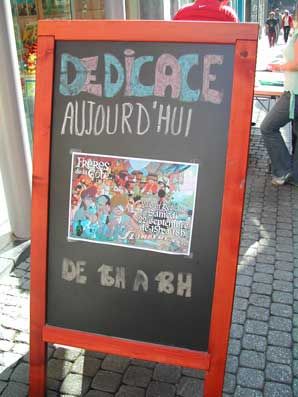 DEDICACE
AUJOURD'HUI
FRÈRES
de la
CÔTE
Samedi
22 septembre
de 15h à 18h
DE 15H A 18H